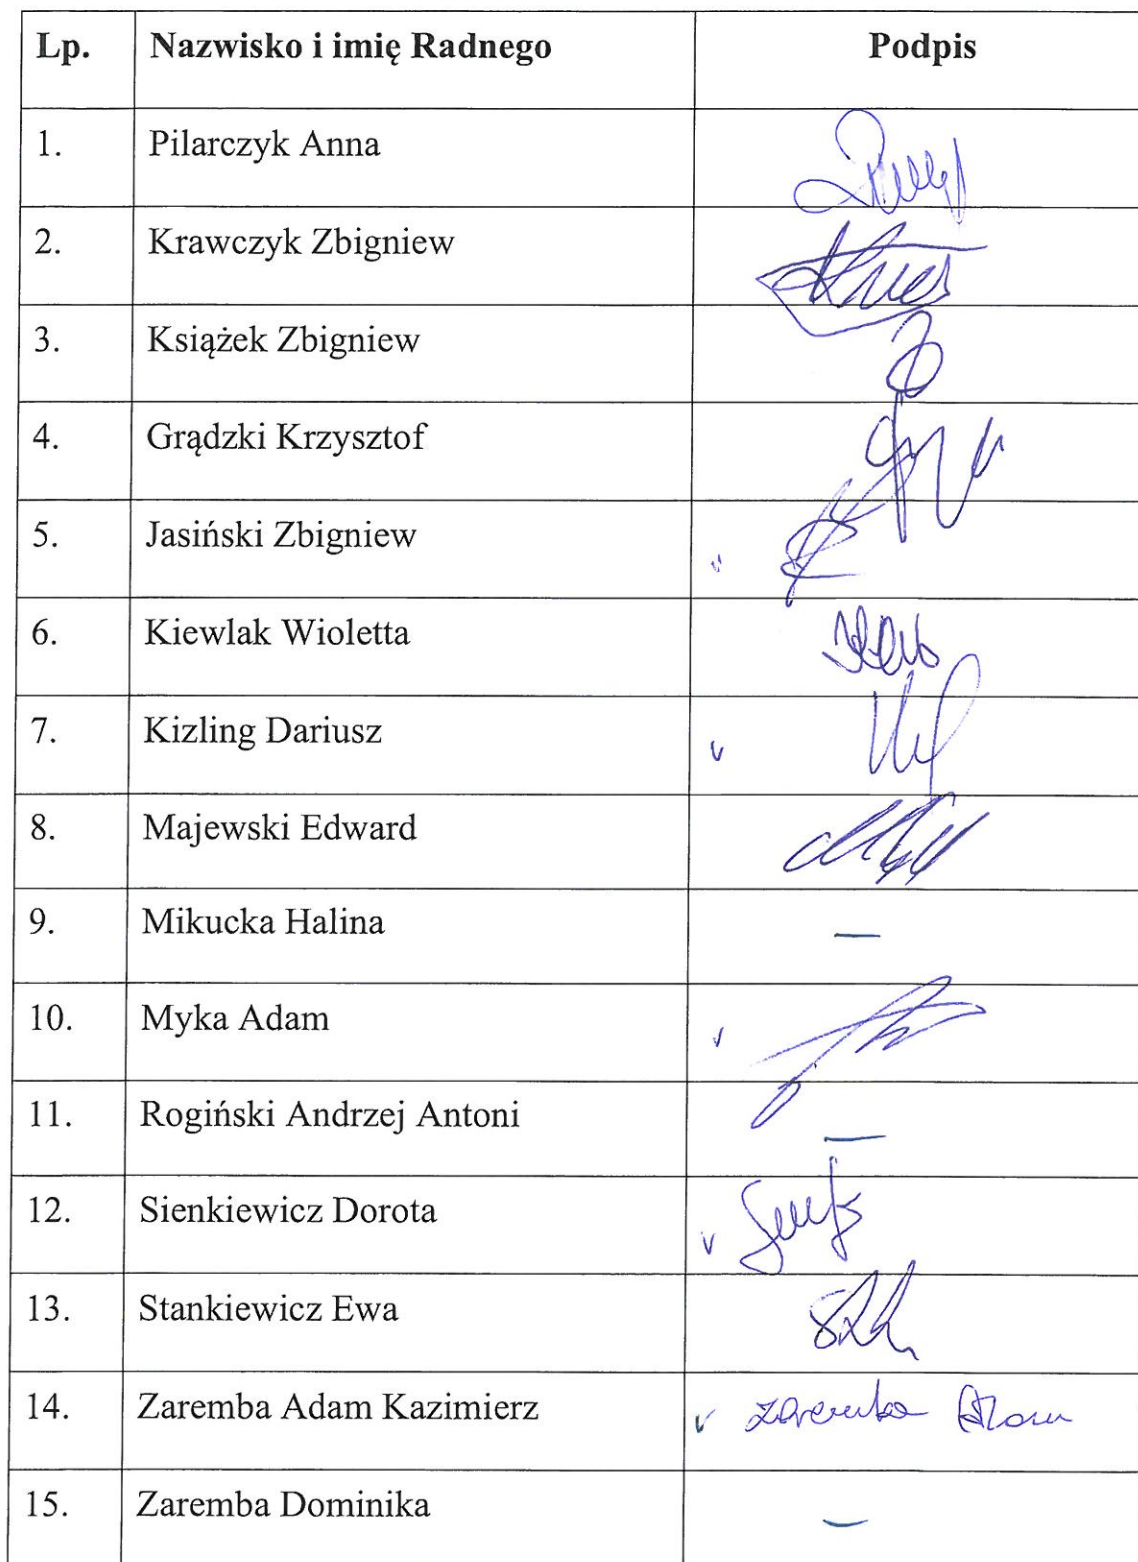 Lp. Nazwisko i imię Radnego Podpis
1. Pilarczyk Anna
2. Krawczyk Zbigniew
3. Książek Zbigniew
4. Grądzki Krzysztof
5. Jasiński Zbigniew v
6. Kiewlak Wioletta
7. Kizling Dariusz v
8. Majewski Edward
9. Mikucka Halina —
10. Myka Adam v
11. Rogiński Andrzej Antoni —
12. Sienkiewicz Dorota v
13. Stankiewicz Ewa
14. Zaremba Adam Kazimierz v Zaremba Adam
15. Zaremba Dominika —